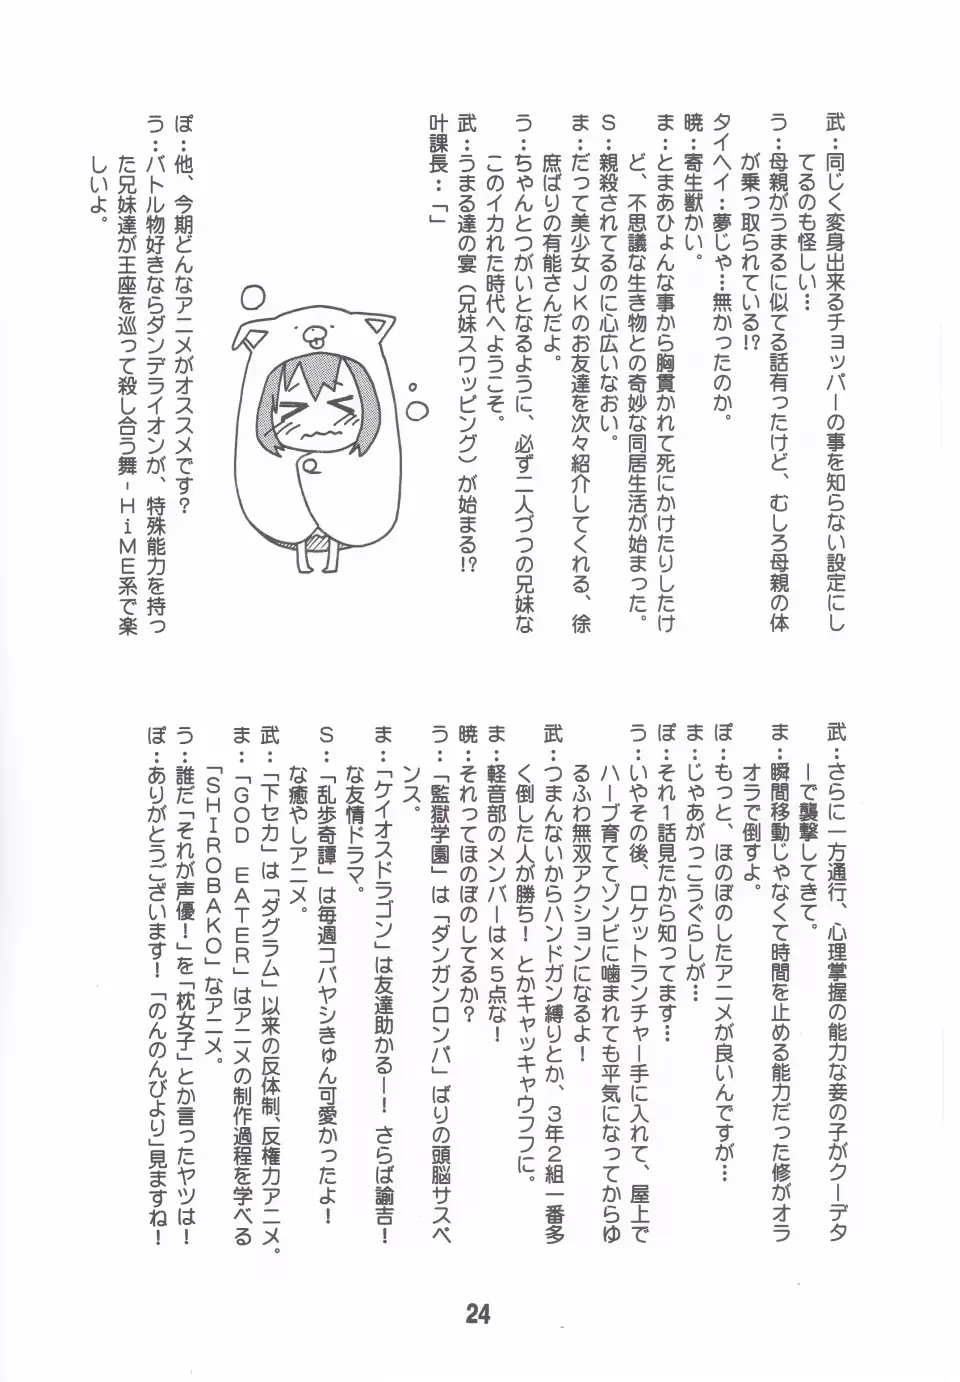 武：同じく変身出来るチョッパーの事を知らない設定にし
てるのも怪しい…
う：母親がうまるに似てる話有ったけど、むしろ母親の体
が乗っ取られている!?
タイヘイ：夢じゃ…無かったのか。
暁：寄生獣かい。
ま：とまあひょんな事から胸貫かれて死にかけたりしたけ
ど、不思議な生き物との奇妙な同居生活が始まった。
S：親殺されてるのに心広いなおい。
ま：だって美少女JKのお友達を次々紹介してくれる、徐
庶ばりの有能さんだよ。
う：ちゃんとつがいとなるように、必ず二人づつの兄妹な
このイカれた時代へようこそ。
武：うまる達の宴（兄妹スワッピング）が始まる!?
叶課長：「」
ぽ：他、今期どんなアニメがオススメです？
う：バトル物好きならダンデライオンが、特殊能力を持っ
た兄妹達が王座を巡って殺し合う舞-HiME系で楽
しいよ。
武：さらに一方通行、心理掌握の能力な妾の子がクーデタ
ーで襲撃してきて。
ま：瞬間移動じゃなくて時間を止める能力だった修がオラ
オラで倒すよ。
ぽ：もっと、ほのぼのしたアニメが良いんですが…
ま：じゃあがっこうぐらしが…
ぽ：それ1話見たから知ってます…
う：いやその後、ロケットランチャー手に入れて、屋上で
ハーブ育ててゾンビに噛まれても平気になってからゆ
るふわ無双アクションになるよ！
武：つまんないからハンドガン縛りとか、3年2組一番多
く倒した人が勝ち！とかキャッキャウフフに。
ま：軽音部のメンバーは×5点な！
暁：それってほのぼのしてるか？
う：「監獄学園」は「ダンガンロンパ」ばりの頭脳サスペ
ンス。
ま：「ケイオスドラゴン」は友達助かるー！さらば諭吉！
な友情ドラマ。
S：「乱歩奇譚」は毎週コバヤシきゅん可愛かったよ！
な癒やしアニメ。
武：「下セカ」は「ダグラム」以来の反体制、反権力アニメ。
ま：「GOD EATER」はアニメの制作過程を学べる
「SHIROBAKO」なアニメ。
う：誰だ「それが声優！」を「枕女子」とか言ったヤツは！
ぽ：ありがとうございます！「のんのんびより」見ますね！
24